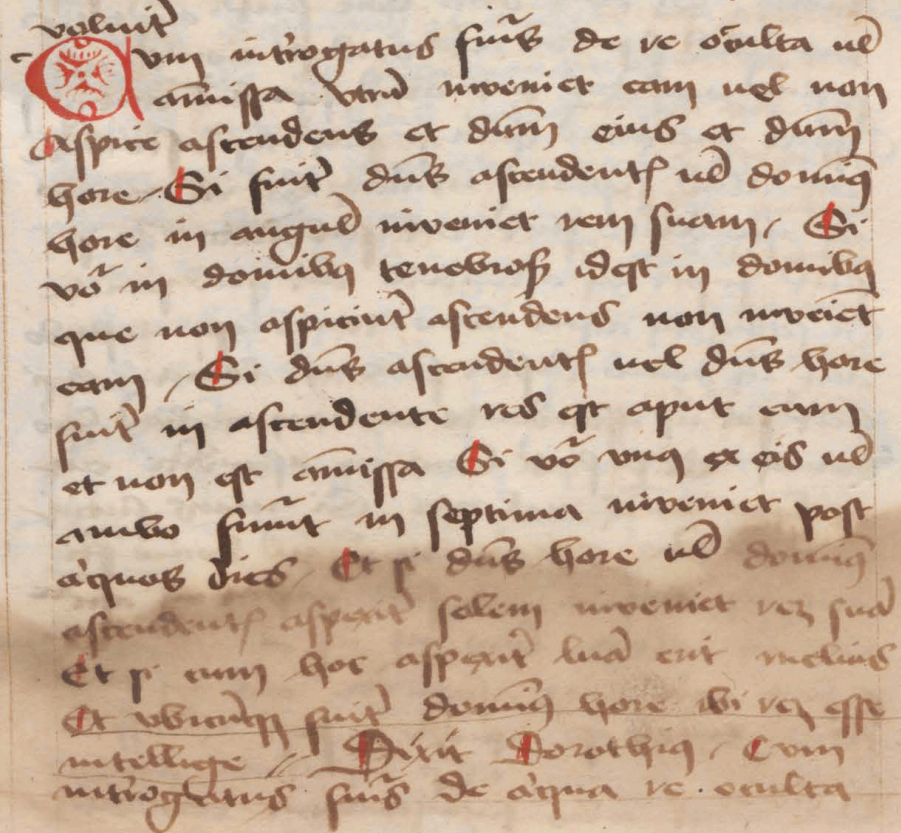 voluit̉
Cum int̉rogatus fu̔is de re oc̉ulta ul̄
am̄issa vtrū inveniet eam uel non
Aspice ascendens et dn̄m eius et dn̄m
hore. Si fuit̉ dn̄s ascendentꝭ ul̄ domin̄ꝰ
hore in angul̄ inveniet rem suam. Si
vō in domibꝰ tenebrosꝭ idest in domibꝰ
que non aspiciūt ascendens non inveīet
eam. Si dn̄s ascendentꝭ uel dn̄s hore
fuit̉ in ascendente res est aput eum
et non est am̄issa Si vō vnꝰ ex eis ul̄
ambo fu̔int in septima inveniet post
a̔iquos dies. Et si dn̄s hore ul̄ domin̄ꝰ
ascendentꝭ aspexit̉ solem inveniet reꝫ suā
Et si cum hoc aspexit̉ lunā erit melius
Et vbicūqꝫ fuit̉ domin̄ꝰ hore ibi reꝫ esse
intellige. Dixit Dorothiꝰ. Cum
int̉rogatus fu̔is de a̔iqua re oculta